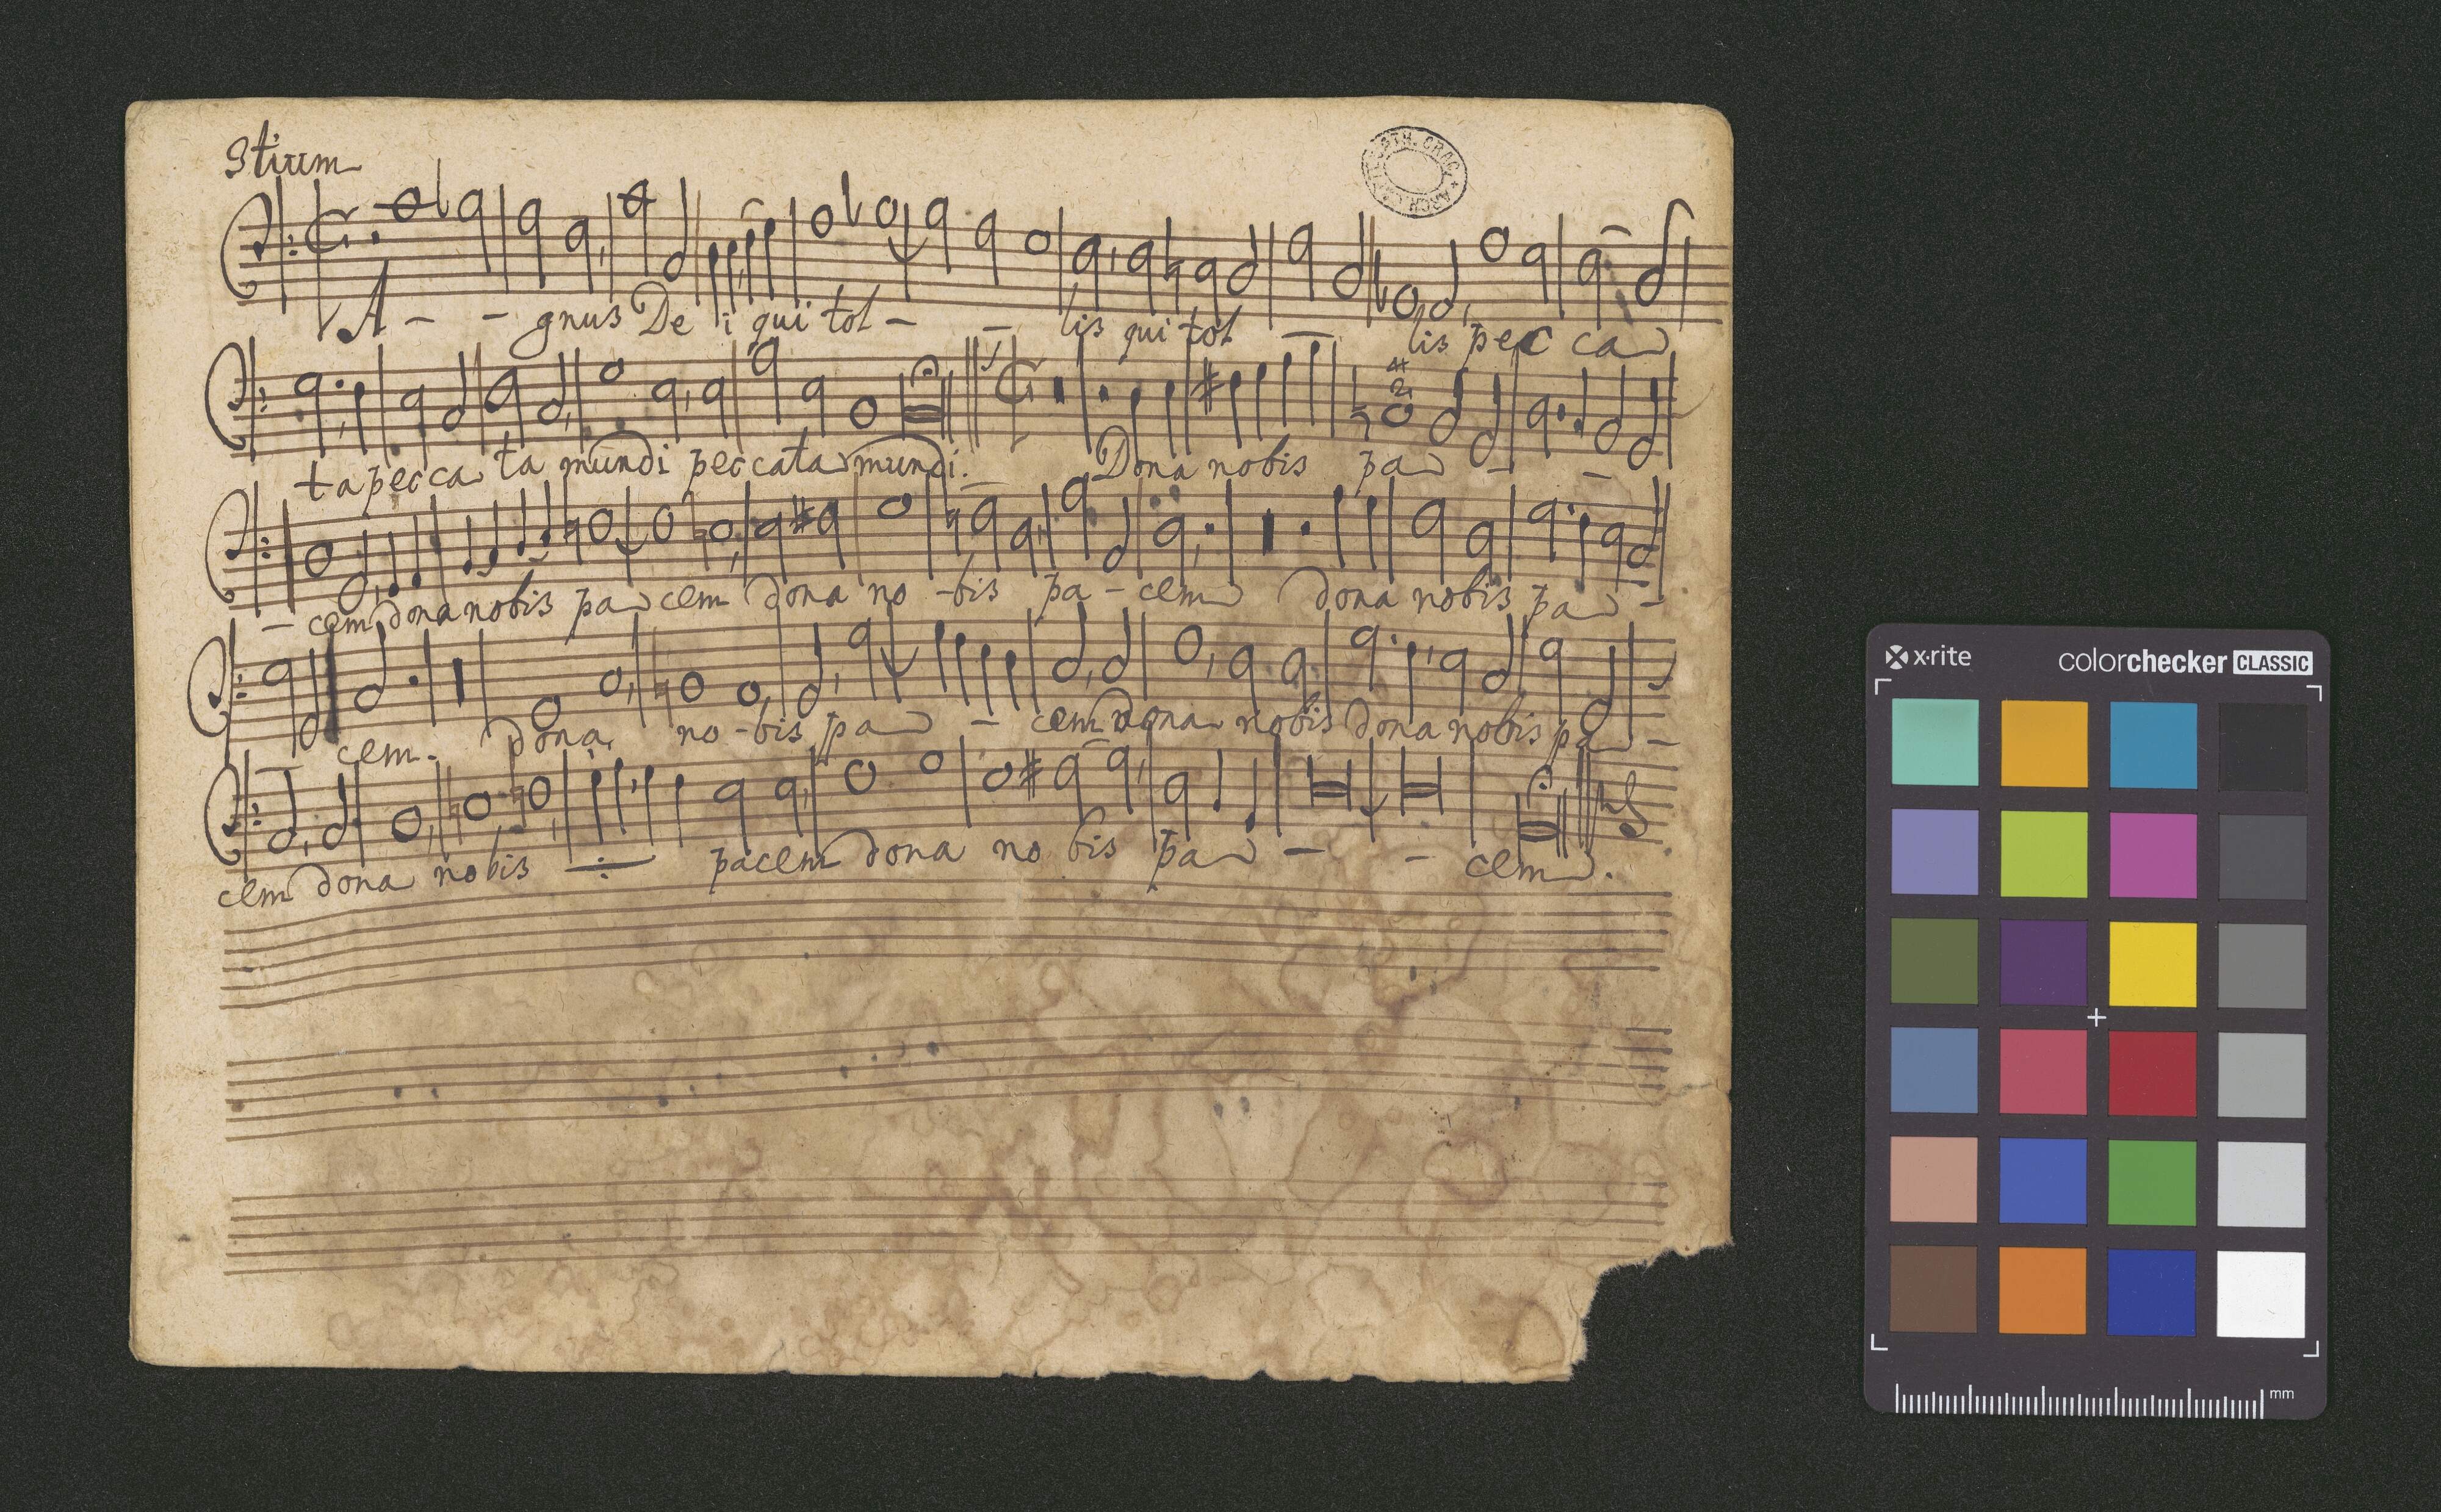 3tium
A - - gnus De i qui tol - - lis qui tol - lis pec ca
ta pec ca ta mundi peccata mundi. Dona nobis pa - -
- cem dona nobis pa cem dona no - bis pa - cem dona nobis pa -
cem. dona no - bis pa - cem dona nobis dona nobis pa -
cem dona nobis pacem dona no bis pa - - cem.
x·rite
colorchecker CLASSIC
mm